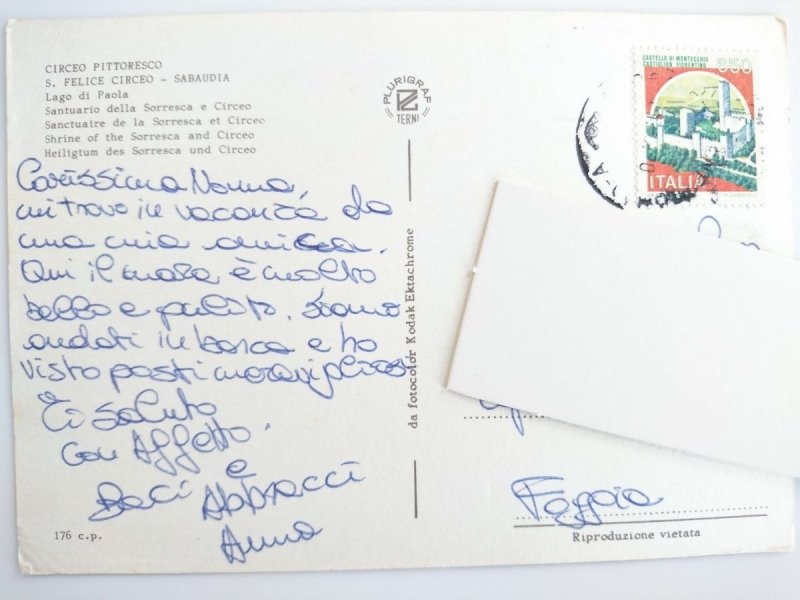 CIRCEO PITTORESCO
S. FELICE CIRCEO - SABAUDIA
Lago di Paola
Santuario della Sorresca e Circeo
Sanctuaire de la Sorresca et Circeo
Shrine of the Sorresca and Circeo
Heiligtum des Sorresca und Circeo
PLURIGRAF
TERNI
CASTELLO DI MONTECCHIO
CASTIGLION FIORENTINO
650
ITALIA
Carissima Nonna,
mi trovo in vacanza da
una mia amica.
Qui il mare è molto
bello e pulito. Siamo
andati in barca e ho
visto posti meravigliosi
Ti saluto
con Affetto.
Baci e Abbracci
Anna
da fotocolor Kodak Ektachrome
Foggia
176 c.p.
Riproduzione vietata